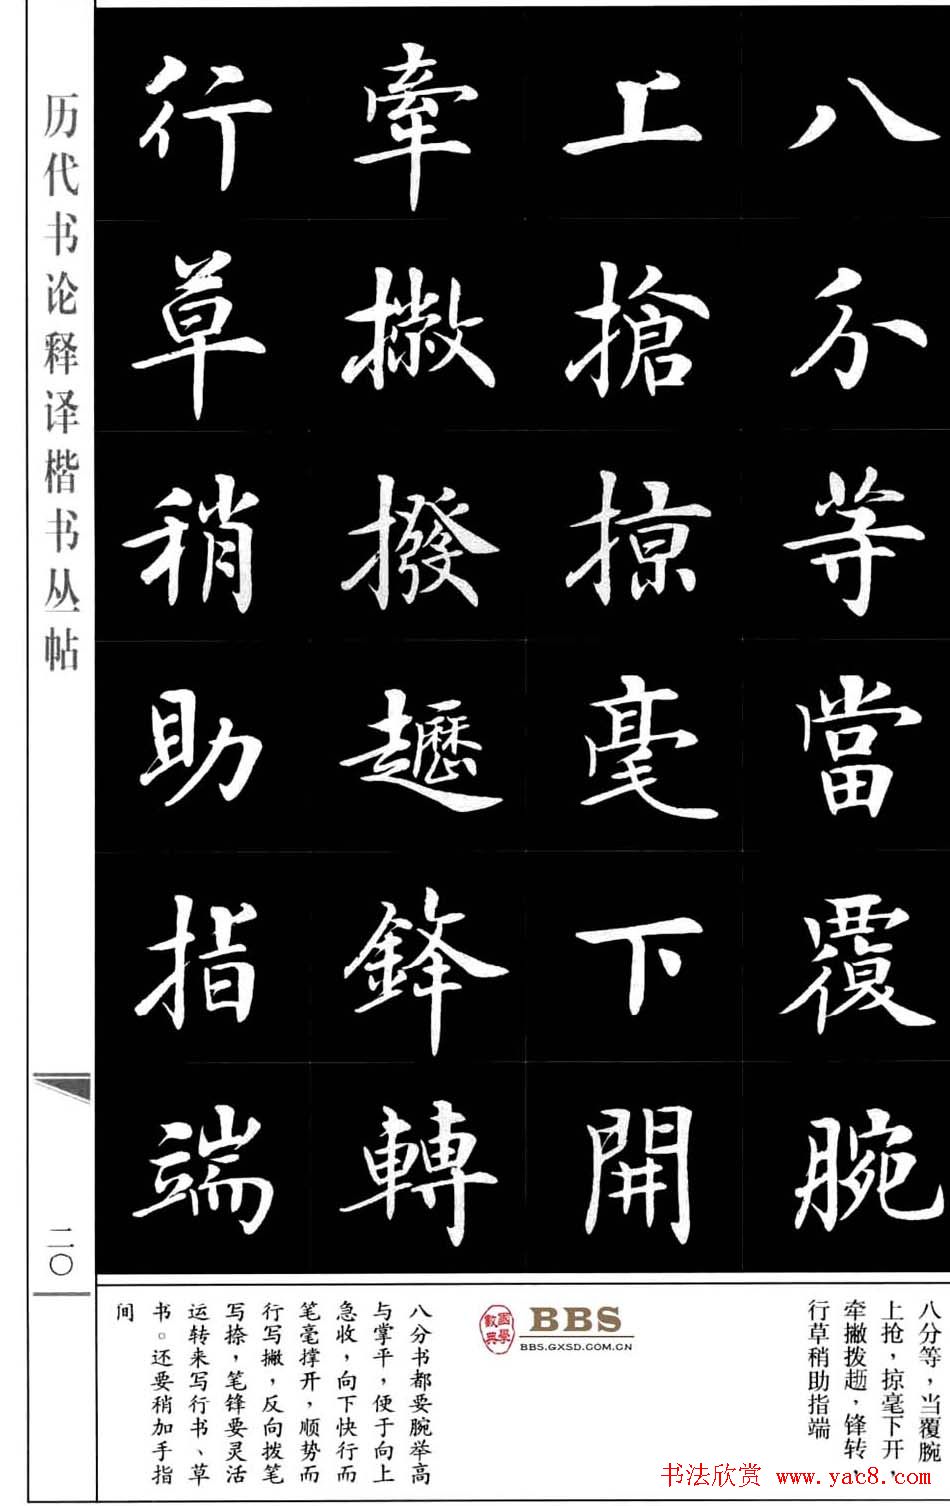 历代书论释译楷书丛帖
二〇
八分等當覆腕
上搶掠毫下開
牽撇撥趯鋒轉
行草稍助指端
八分等，当覆腕
上抢，掠毫下开，
牵撇拨趯，锋转，
行草稍助指端
國學數典
BBS
BBS.GXSD.COM.CN
八分书都要腕举高
与掌平，便于向上
急收，向下快行而
笔毫撑开，顺势而
行写撇，反向拨笔
写捺，笔锋要灵活
运转来写行书、草
书。还要稍加手指
间
书法欣赏 www.yac8.com